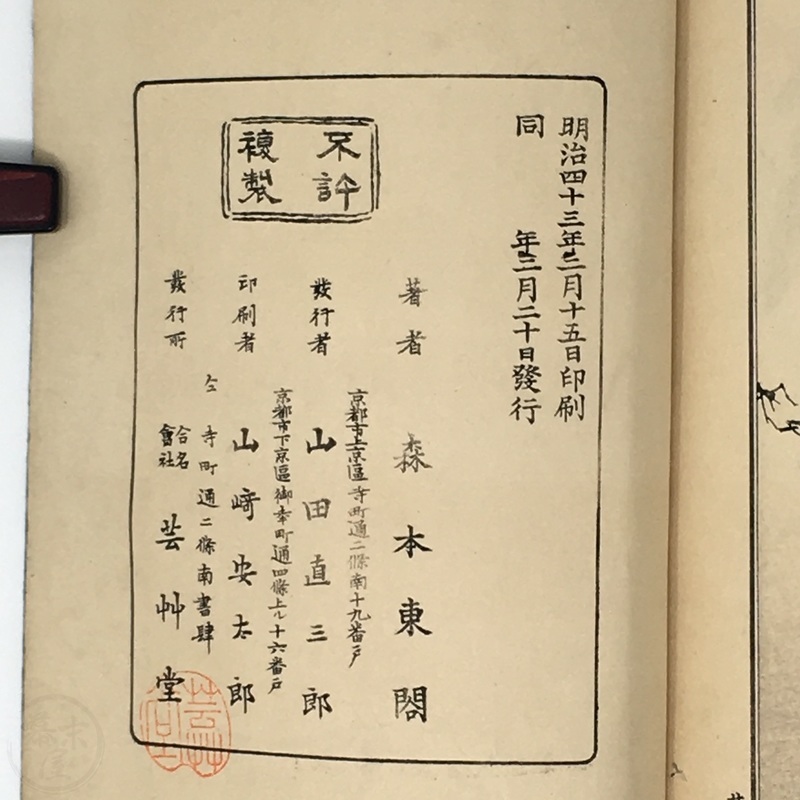 明治四十三年二月十五日印刷
同 年三月二十日發行
不許
複製
著者 森本東閣
京都市上京區寺町通二條南十九番戸
發行者 山田直三郎
京都市下京區御幸町通四條上ル十六番戸
印刷者 山﨑安太郎
仝 寺町通二條南書肆
發行所 合名會社 芸艸堂
芸艸堂